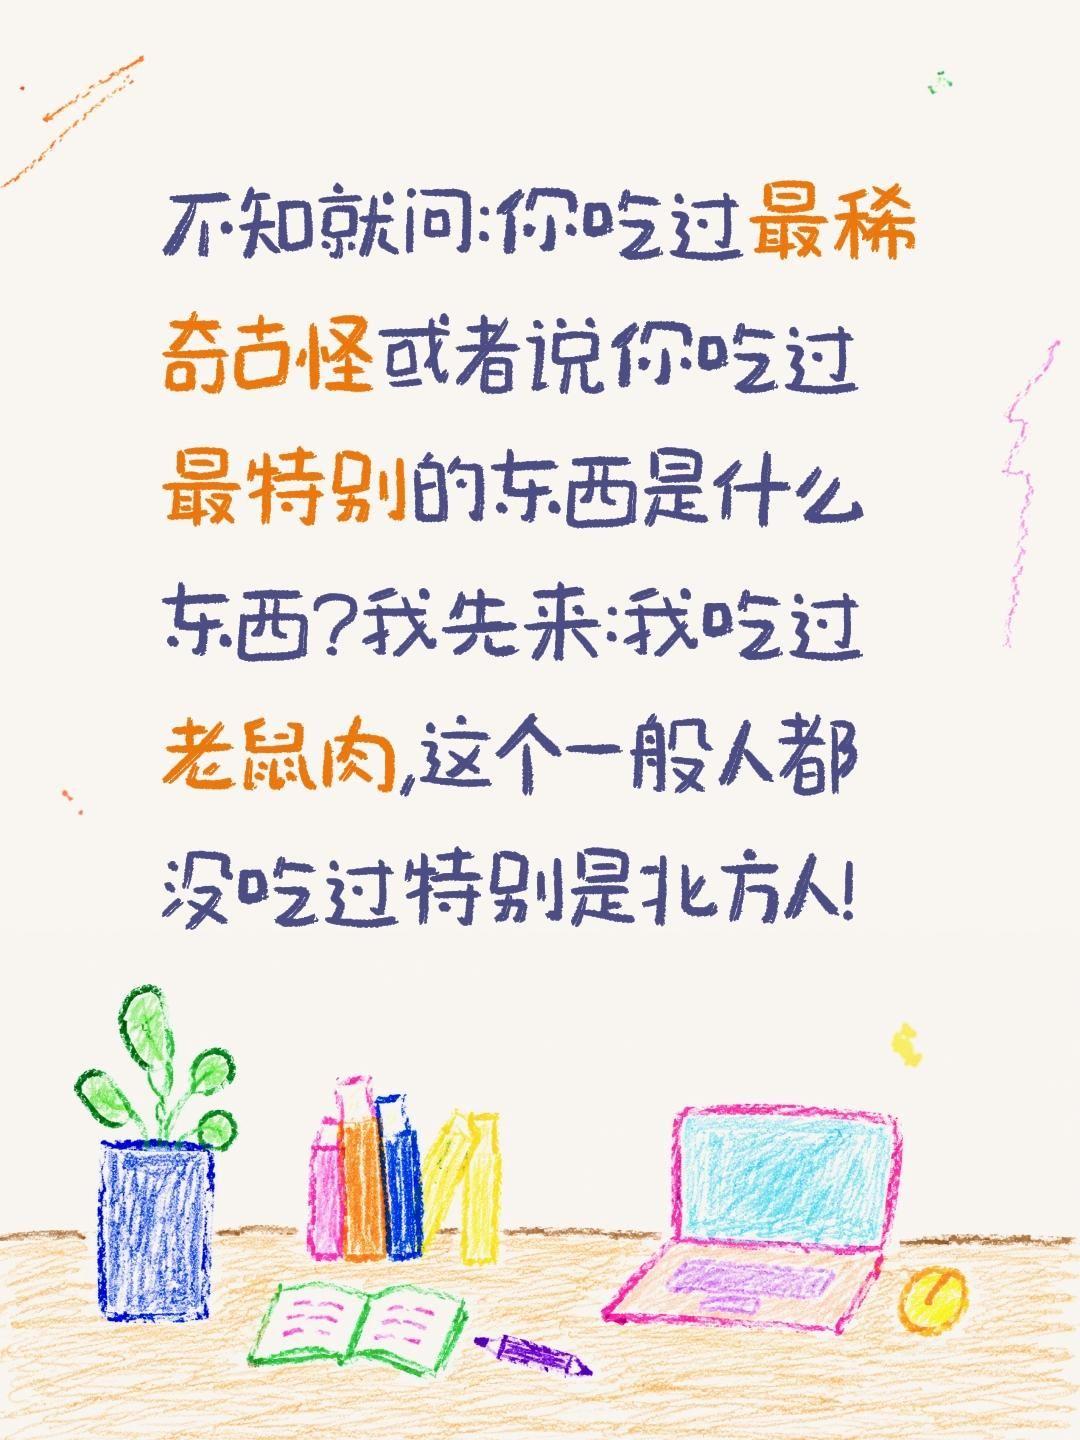 不知就问:你吃过最稀
奇古怪或者说你吃过
最特别的东西是什么
东西?我先来:我吃过
老鼠肉,这个一般人都
没吃过特别是北方人!